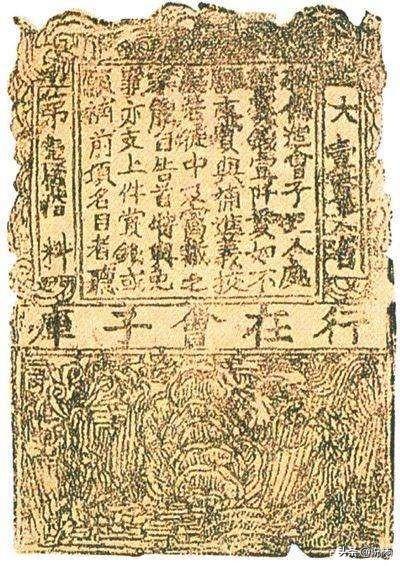 大壹貫文省
敕偽造會子犯人處
斬賞錢壹阡貫如不
願支賞與補進義校
尉若徒中及窩藏之
家能自告首特與免
罪亦支上件賞錢或
願補前項名目者聽
第料
行在會子庫
头条